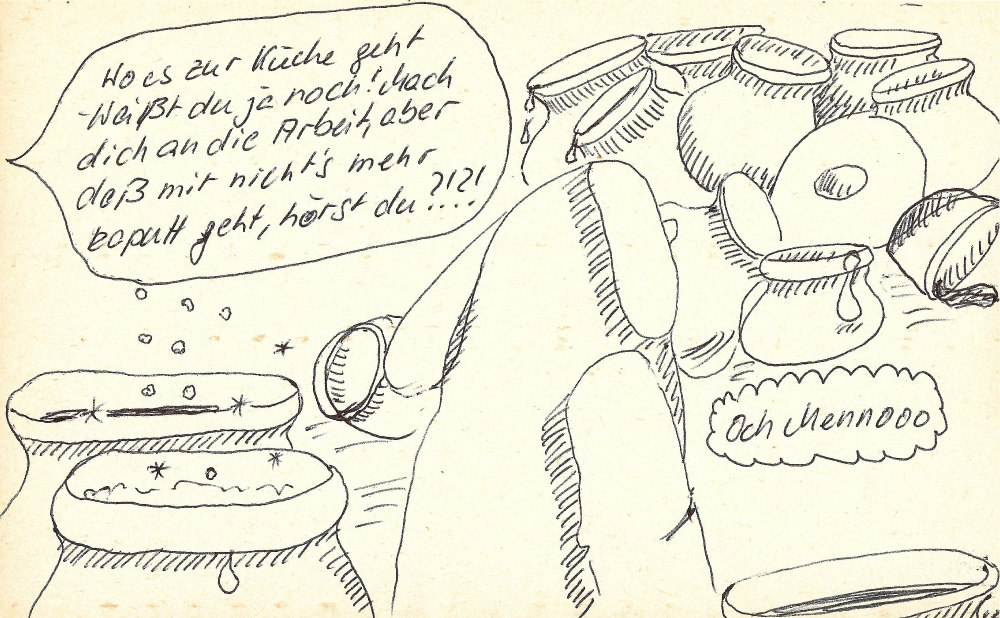 Wo es zur Küche geht
Weißt du ja noch! Mach
dich an die Arbeit, aber
daß mir nicht's mehr
kaputt geht, hörst du?!?!...
Och Mennooo